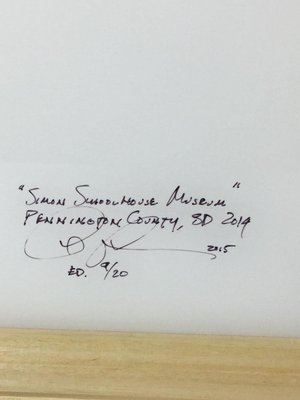 "Simon Schoolhouse Museum"
Pennington County, SD 2014
2015
ED. 9/20